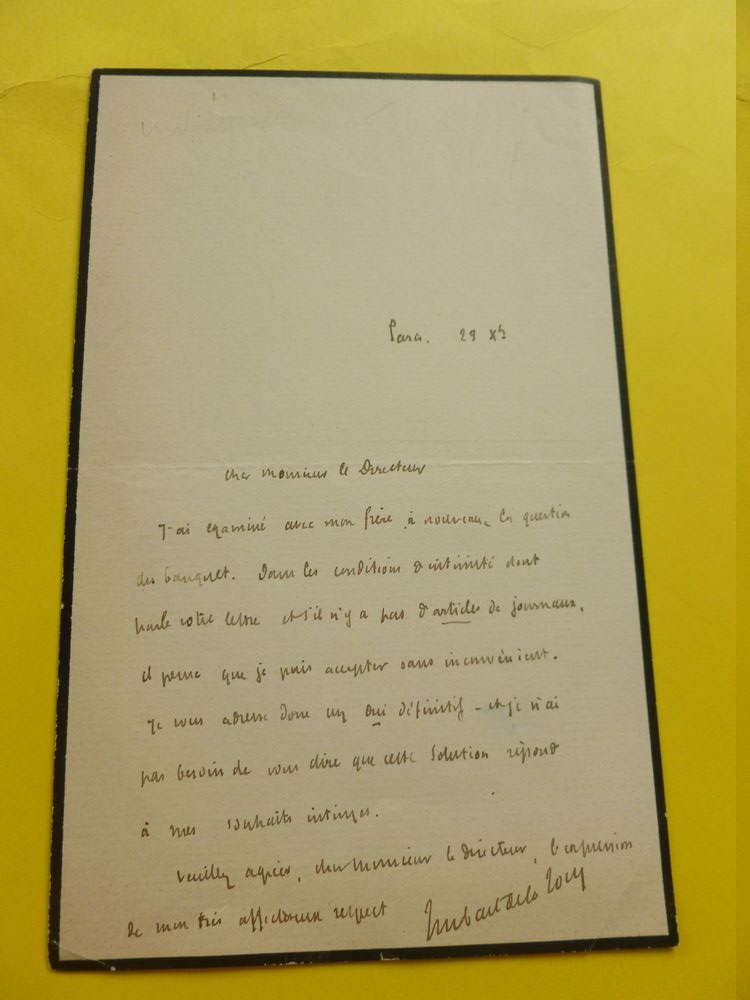 Paris. 28 Xb
cher Monsieur le Directeur
J'ai examiné avec mon frère à nouveau, la question
du banquet. Dans les conditions d'intimité dont
parle votre lettre et s'il n'y a pas d'articles de journaux,
il pense que je puis accepter sans inconvénient.
Je vous adresse donc un oui définitif - et je n'ai
pas besoin de vous dire que cette solution répond
à mes souhaits intimes.
Veuillez agréer, cher Monsieur le directeur, l'expression
de mon très affectueux respect
Imbart de la Tour